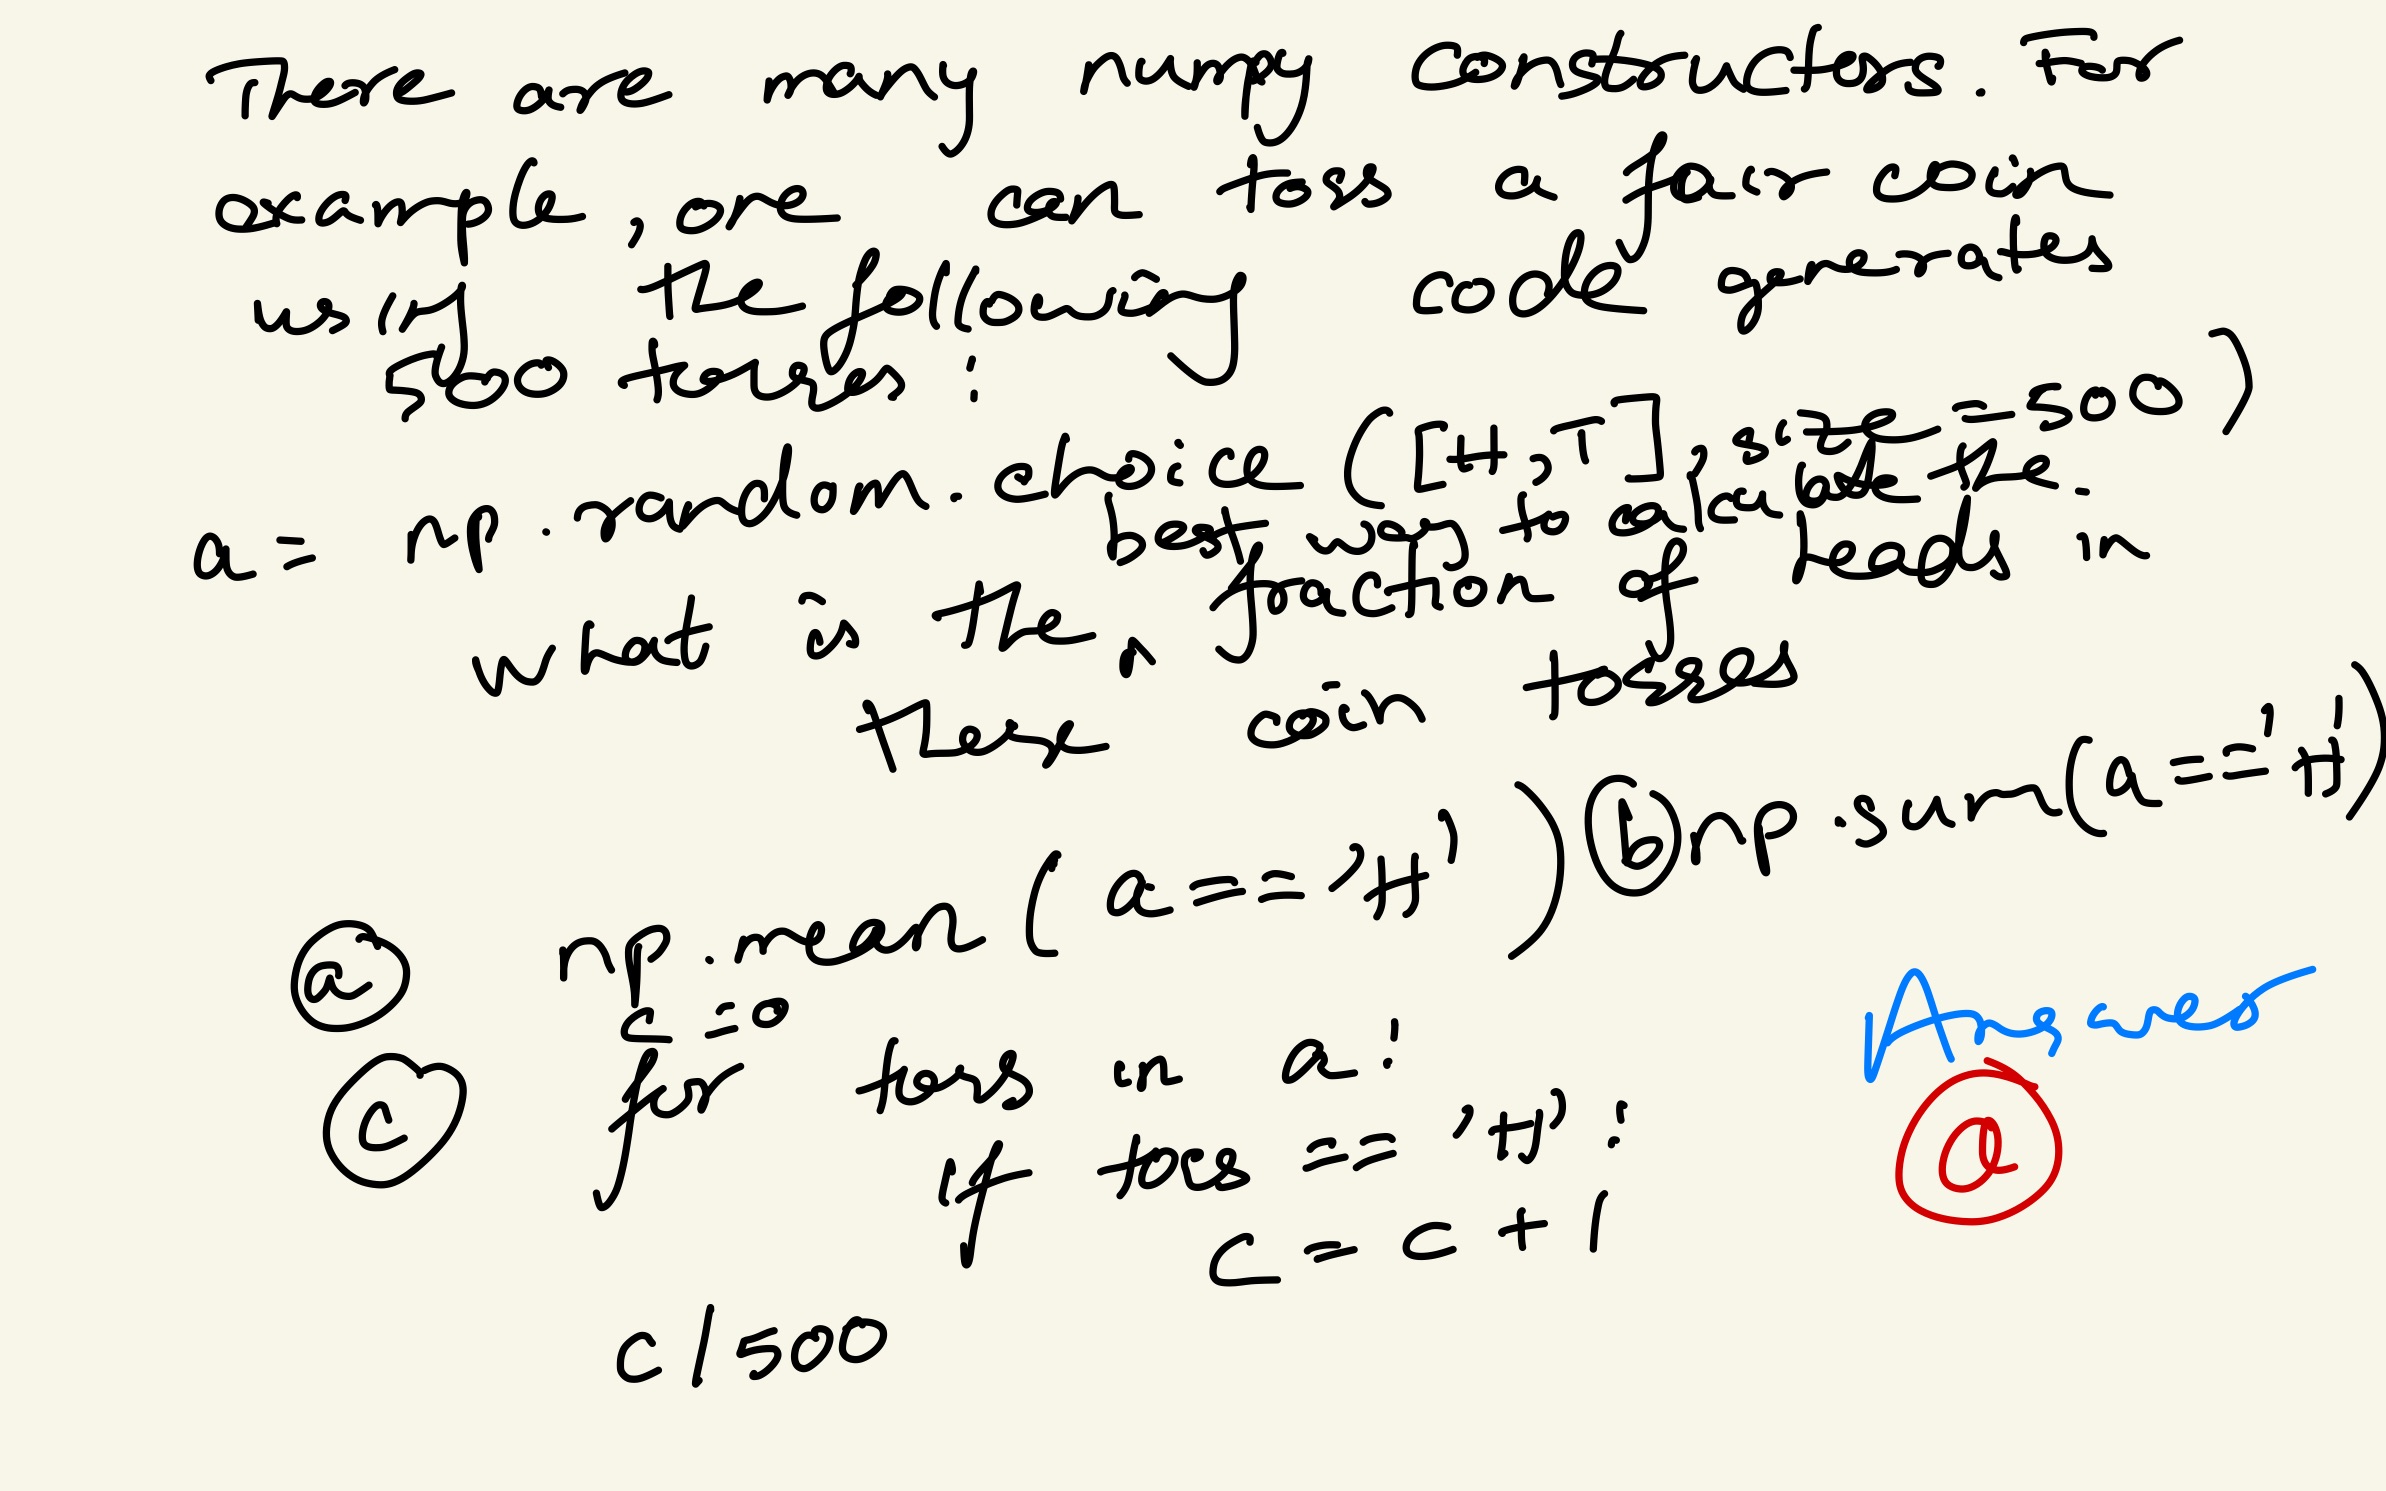 There are many numpy constructors. For
example, one can toss a fair coin
using the following code generates
500 tosses:
a = np.random.choice([H, T], size = 500)
best way to calculate the
what is the ^ fraction of heads in
these coin tosses
(a) np.mean(a == 'H') (b) np.sum(a == 'H')
(c) c = 0
for toss in a:
if toss == 'H':
c = c + 1
c/500
Answer
(a)